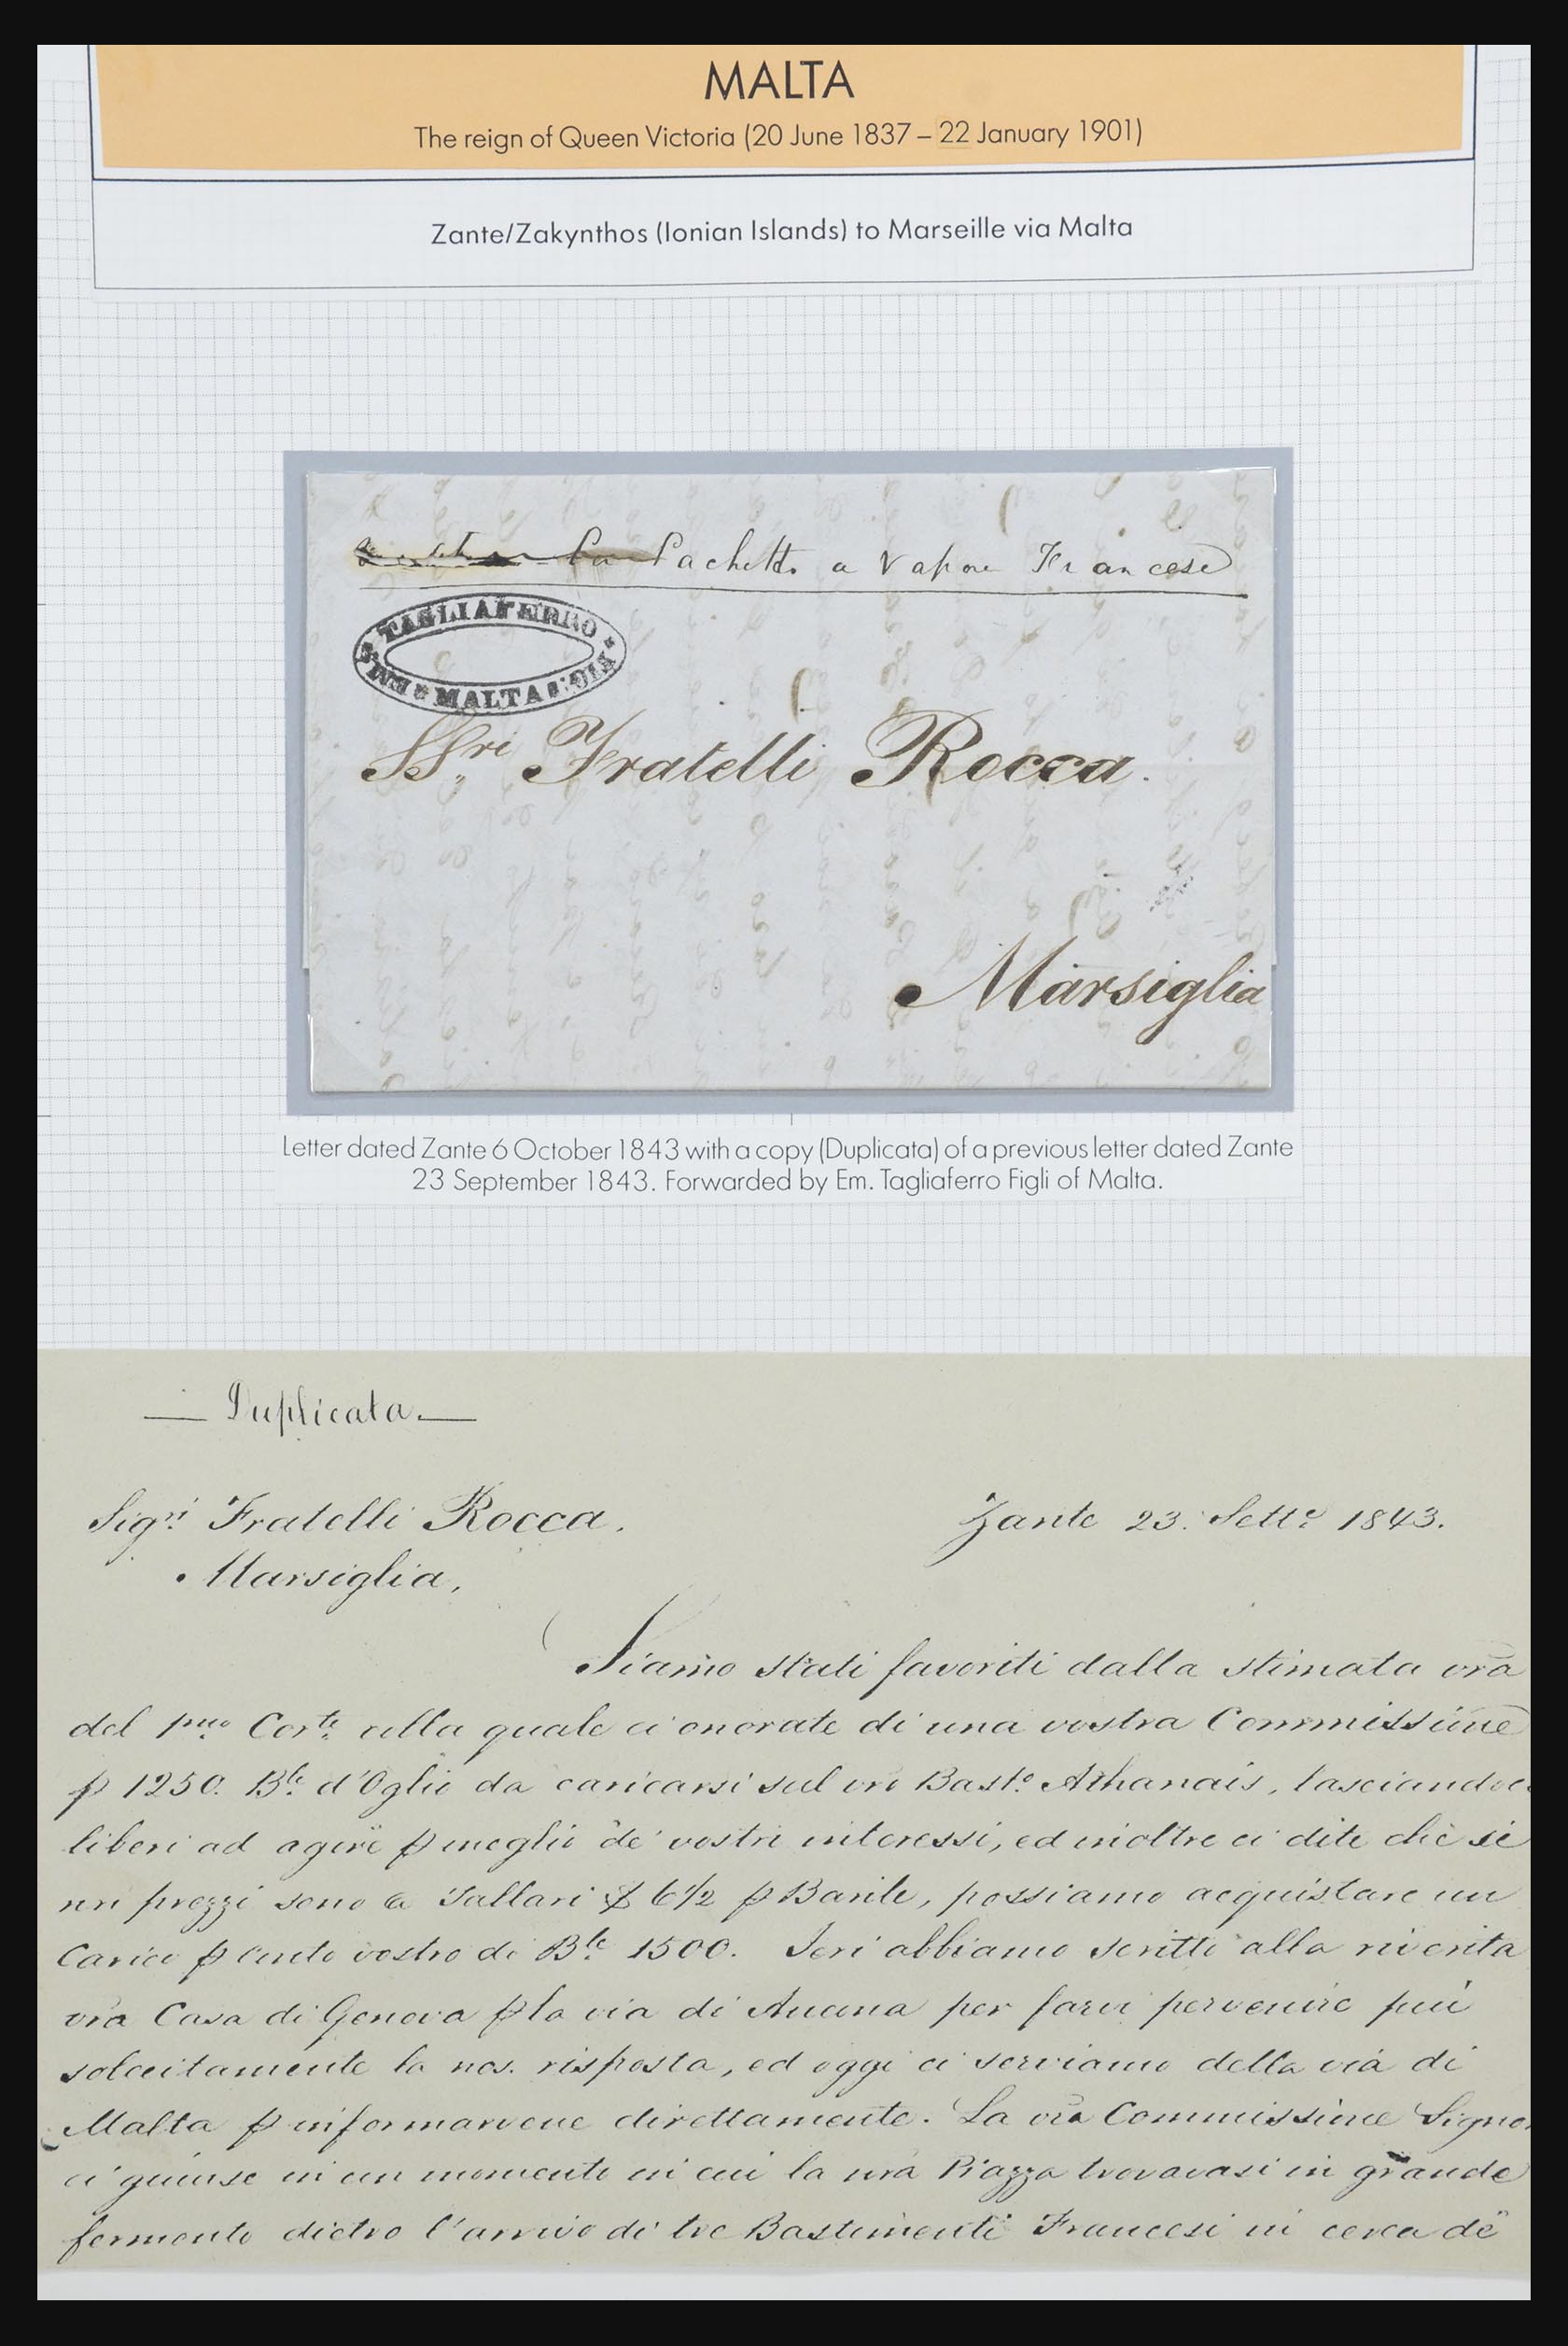 MALTA
The reign of Queen Victoria (20 June 1837 – 22 January 1901)
Zante/Zakynthos (Ionian Islands) to Marseille via Malta
Pachetto a Vapore Francese
TAGLIAFERRO
EM. MALTA FIGLI
SSri Fratelli Rocca.
Marsiglia
Letter dated Zante 6 October 1843 with a copy (Duplicata) of a previous letter dated Zante
23 September 1843. Forwarded by Em. Tagliaferro Figli of Malta.
— Duplicata. —
Sigri Fratelli Rocca.
Zante 23. Sette 1843.
Marsiglia,
Siamo stati favoriti dalla stimata vra
del pmo Corte colla quale ci onorate di una vostra Commissione
p 1250. Ble d'Oglio da caricarsi sul vro Basto Athanais, lasciandoci
liberi ad agire p meglio de' vostri interessi, ed inoltre ci dite che se
nri prezzi sono a Tallari 6½ p Barile, possiamo acquistare un
Carico p conto vostro di Ble 1500. Ieri abbiamo scritto alla riverita
vra Casa di Genova p la via di Ancona per farvi pervenire più
solecitamente la nos. risposta, ed oggi ci serviamo della via di
Malta p informarvene direttamente. La vra Commissione Signori
ci giunse in un momento in cui la nra Piazza trovavasi in grande
fermento dietro l'arrivo di tre Bastimenti Francesi in cerca de